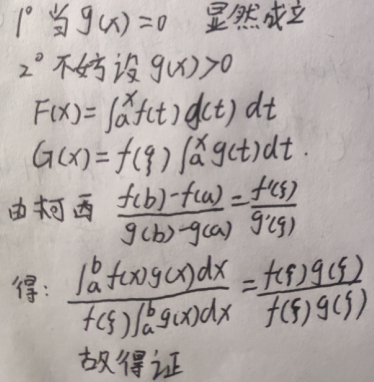 1° 当 g(x)=0 显然成立
2° 不妨设 g(x)>0
F(x)=∫ₐˣ f(t) g(t) dt
G(x)=f(ξ)∫ₐˣ g(t)dt.
由柯西 (f(b)-f(a))/(g(b)-g(a)) = f'(ξ)/g'(ξ)
得: (∫ₐᵇ f(x)g(x)dx)/(f(ξ)∫ₐᵇ g(x)dx) = (f(ξ)g(ξ))/(f(ξ)g(ξ))
故得证